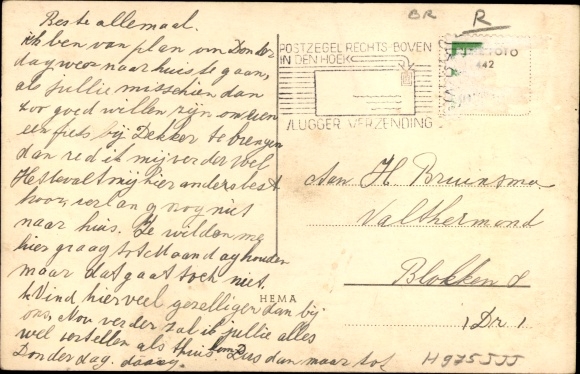 Beste allemaal.
ik ben van plan om Donder
dag weer naar huis te gaan,
als jullie misschien dan
zoo goed willen zijn om een
een fiets bij Dekker te brengen
dan red ik mij verder wel
Het bevalt mij hier anders best
hoor, verlang nog niet
naar huis. Ze wilden me
hier graag tot Maandag houden
maar dat gaat toch niet
'k Vind hier veel gezelliger dan bij
ons. Nou verder zal ik jullie alles
wel vertellen als thuis kom. Dus dan maar tot
Donderdag. daag.
HEMA
BR
R
POSTZEGEL RECHTS-BOVEN
IN DEN HOEK
VLUGGER VERZENDING
FOTO
442
Aan H Bruinsma
Valthermond
Blokken 8
(Dr)
H975JJJ